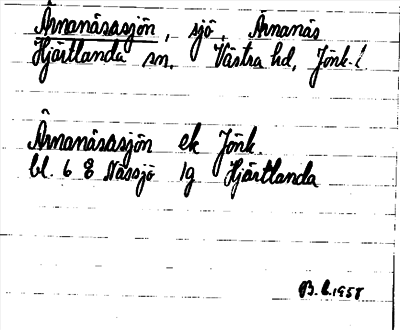 Årnanäsasjön, sjö, Årnanäs
Hjärtlanda sn, Västra hd, Jönk. l
Årnanäsasjön ek Jönk.
bl. 6 E Nässjö 1g Hjärtlanda
B. L. 1958